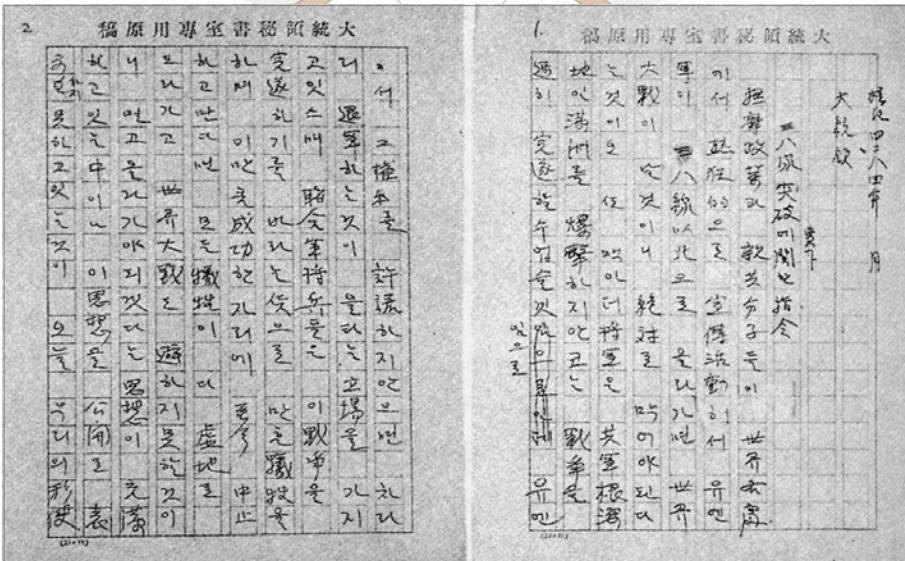 大統領秘書室專用原稿
1.
檀紀四二八四年 月
大統領
貴下
三八線突破에 關한 指令
撫摩政策과 親共分子들이 世界各處
에서 熱狂的으로 宣傳活動해서 유엔
軍이 三八線以北으로 올라가면 世界
大戰이 날것이니 絶對로 막어야된다
는것이오 맥아더將軍은 共軍根據
地인滿洲를 爆擊하지안코는 戰爭을
速히 完遂할수업슬것임으로 유엔
大統領秘書室專用原稿
2
서 그權利를 許諾하지안으면 차라
리 退軍하는것이 올타는 立場을 가지
고잇스매 聯合軍將兵들은 이戰爭을
完遂하기를 바라는 뜻으로 만흔犧牲을
하며 이만콤成功한자리에 至今 中止
하고만다면 모든犧牲이 다 虛地로
도라가고 世界大戰도 避하지못할것이
니 올라가야되겟다는 思想이 充滿
하고잇는中이나 이思想을 公開로 表
못하고잇는것이 오늘 우리의形便